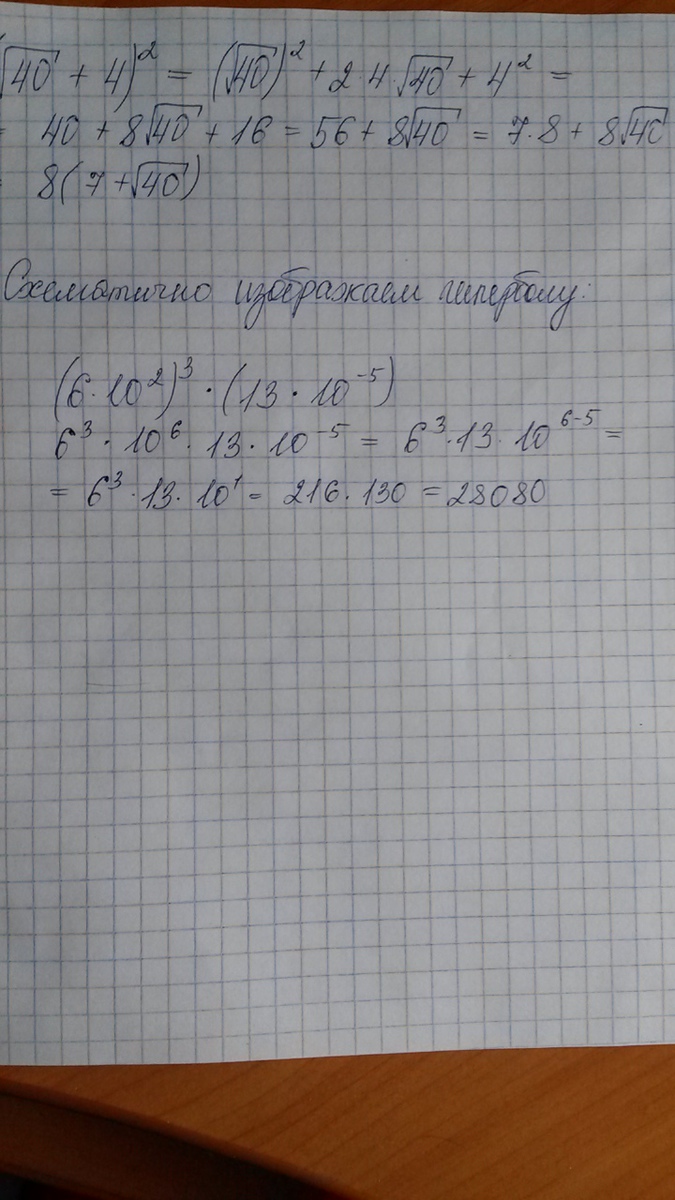 (√40 + 4)² = (√40)² + 2·4·√40 + 4² =
= 40 + 8√40 + 16 = 56 + 8√40 = 7·8 + 8√40
= 8(7 + √40)
Схематично изображаем гиперболу:
(6·10²)³ · (13·10⁻⁵)
6³ · 10⁶ · 13 · 10⁻⁵ = 6³·13·10⁶⁻⁵ =
= 6³·13·10¹ = 216·130 = 28080